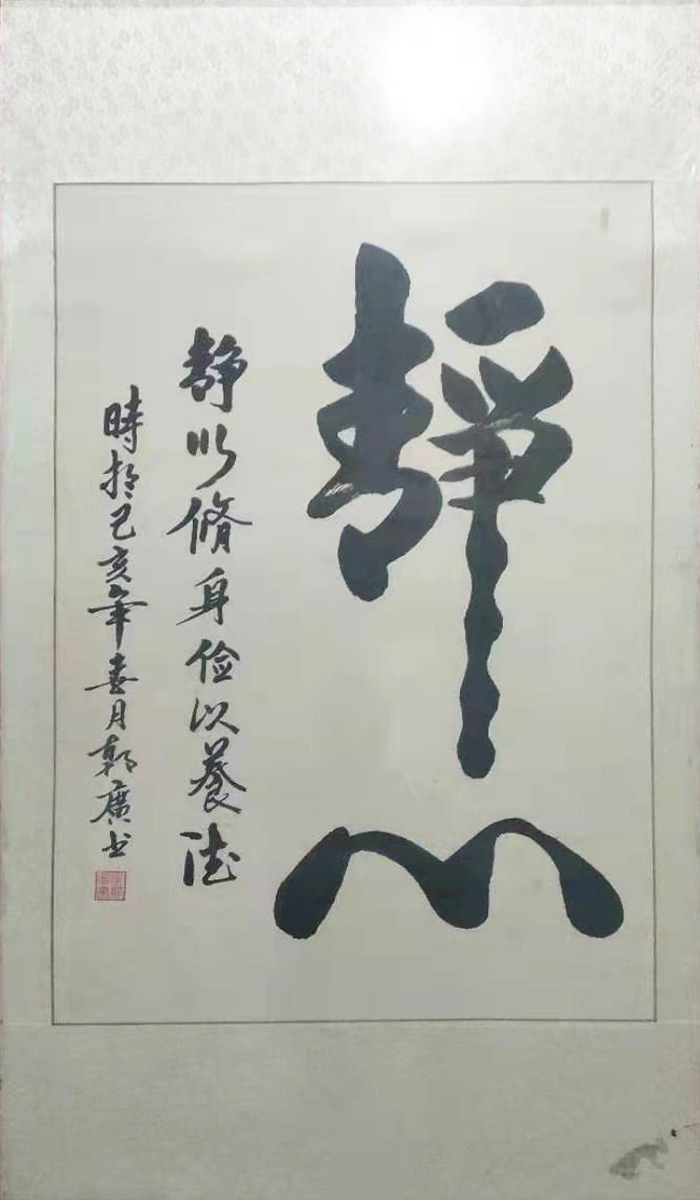 靜心
靜以脩身俭以養德
時於己亥年春月郭廣书